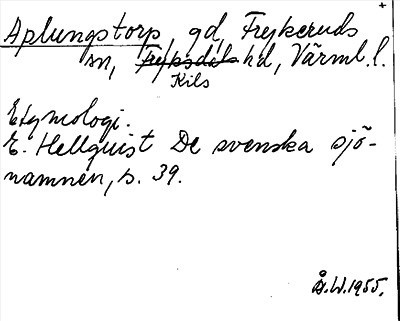 +
Aplungstorp, gd, Frykeruds
sn, Fryksdals hd, Värml. l.
Kils
Etymologi.
E. Hellquist De svenska sjö-
namnen, s. 39.
Å.W.1955.